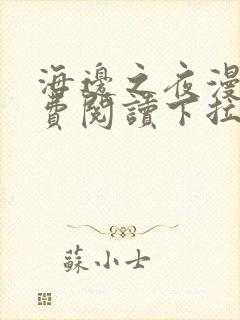 海邊之夜漫
費閱讀下拉
蘇小士